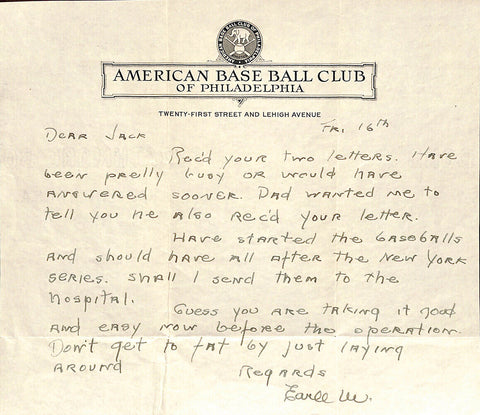 AMERICAN BASE BALL CLUB
OF PHILADELPHIA
TWENTY-FIRST STREET AND LEHIGH AVENUE
Fri. 16th
Dear Jack
Rec'd your two letters. Have
been pretty busy or would have
answered sooner. Dad wanted me to
tell you he also rec'd your letter.
Have started the baseballs
and should have all after the New York
series. Shall I send them to the
hospital.
Guess you are taking it good
and easy now before the operation.
Don't get to fat by just laying
around
Regards
Earle M.